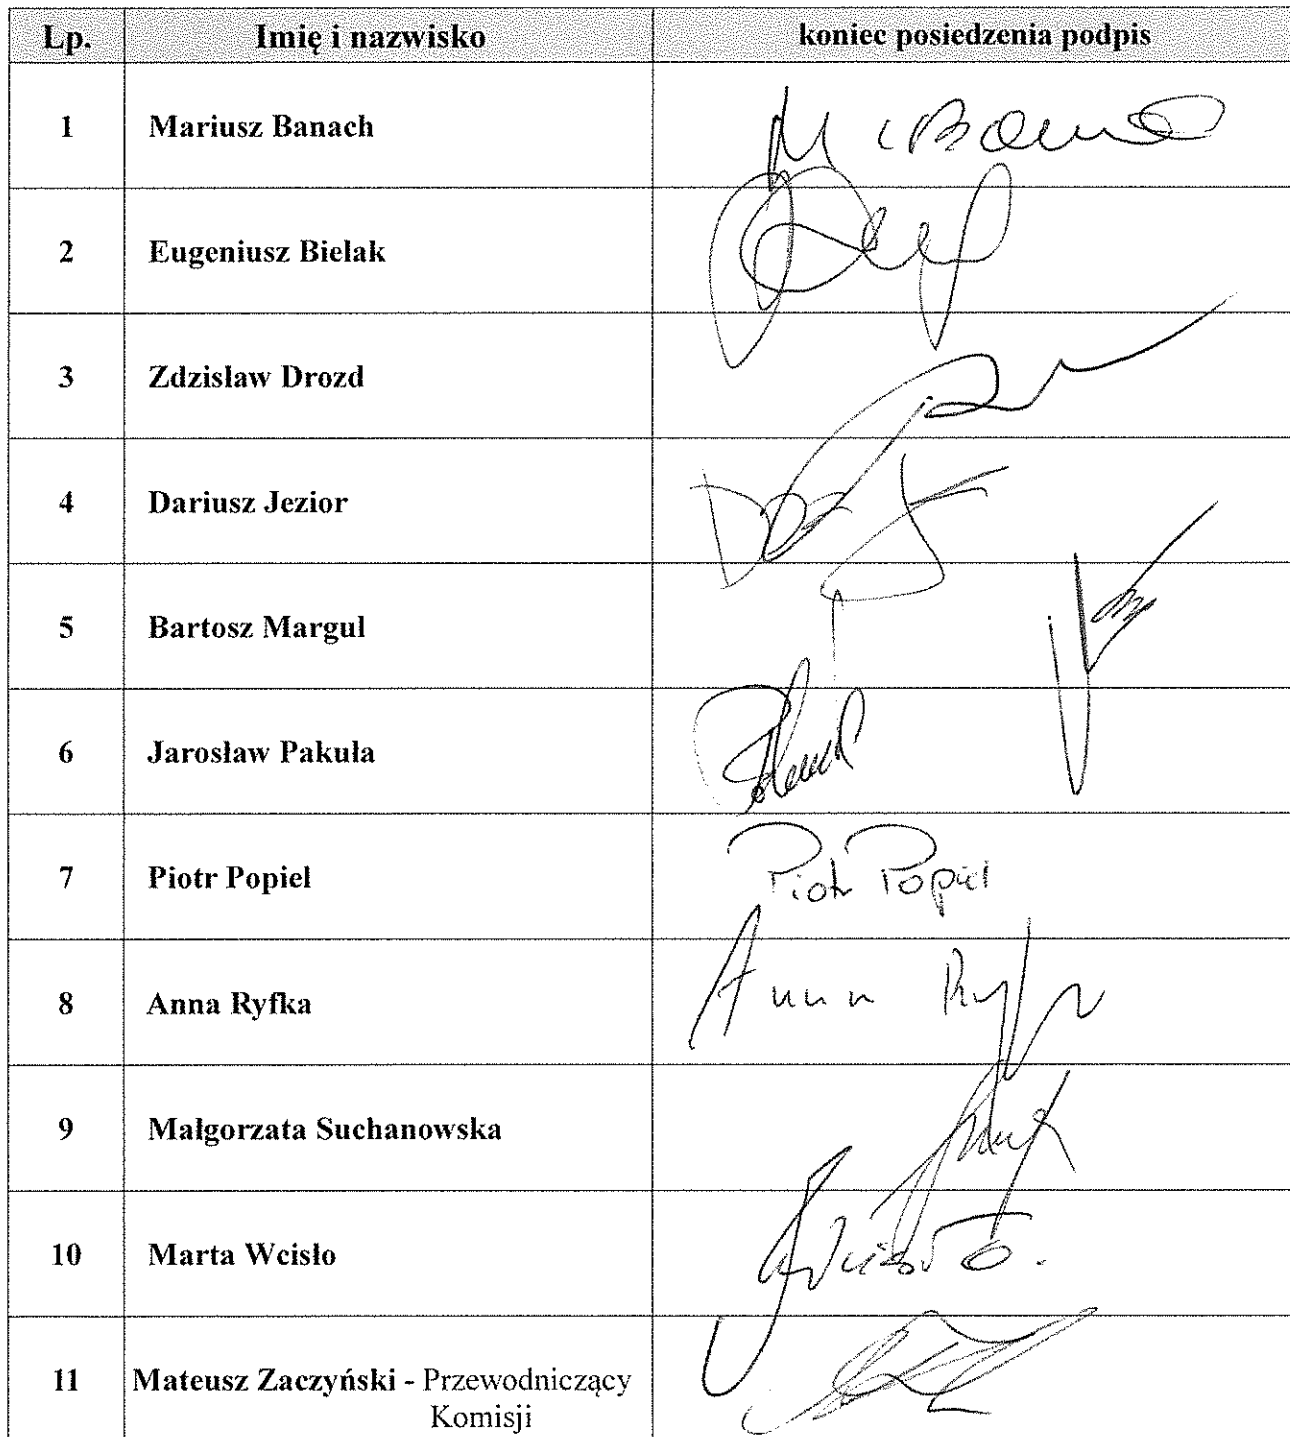 Lp. Imię i nazwisko koniec posiedzenia podpis
1 Mariusz Banach
2 Eugeniusz Bielak
3 Zdzisław Drozd
4 Dariusz Jezior
5 Bartosz Margul
6 Jarosław Pakuła
7 Piotr Popiel Piotr Popiel
8 Anna Ryfka Anna
9 Małgorzata Suchanowska
10 Marta Wcisło Wcisło.
11 Mateusz Zaczyński - Przewodniczący
Komisji